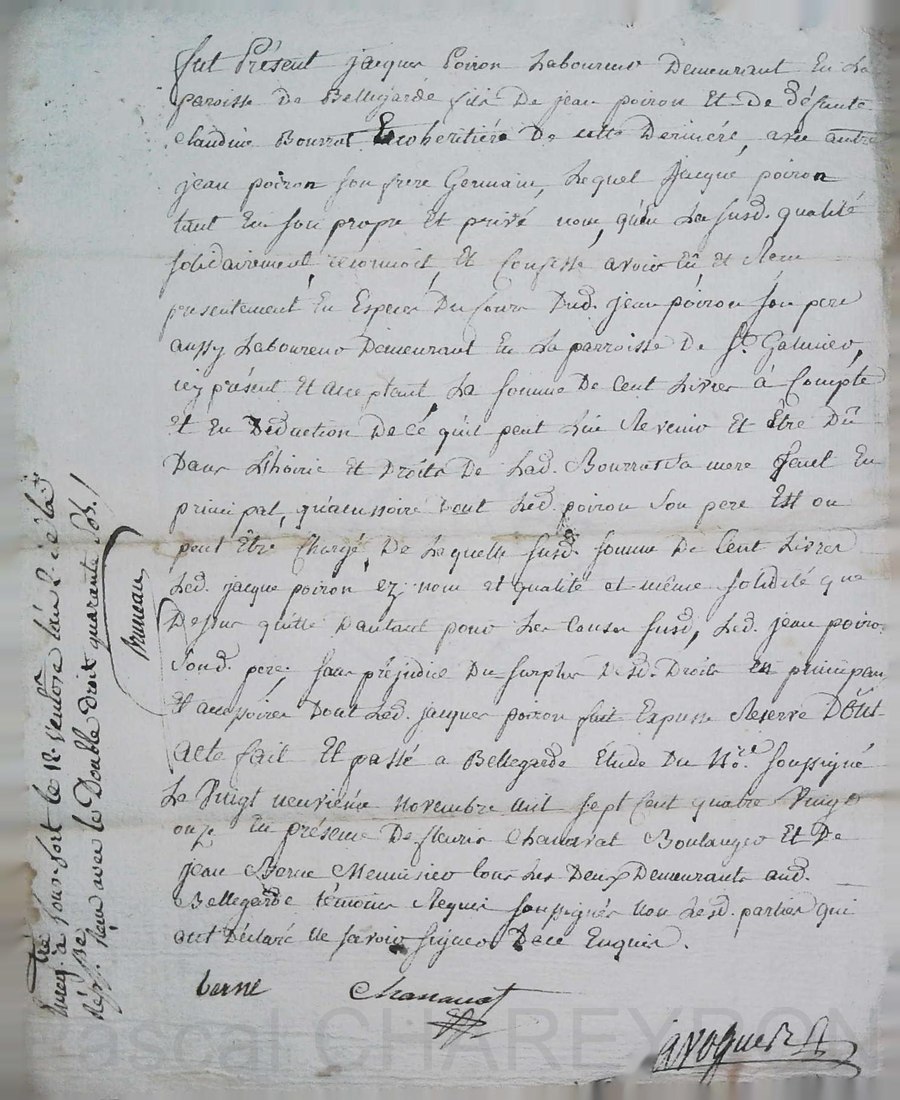 fut Présent jacques Poiron Laboureur Demeurant En La
paroisse De Bellegarde fils De jean poiron Et de défunte
Claudine Bourrat Et coheritiére De cette Derniére, avec autre
jean poiron son frere Germain, Lequel Jacque poiron
tant En son propre Et privé nom, qu'en La susd. qualité
solidairement reconnoit, Et Confesse avoir Eû et Recu
presentement En Especes Du Cours Dud. jean poiron son pere
aussy Laboureur Demeurant En La parroisse De St. Galmier,
icy présent Et acceptant La somme De Cent Livres à Compte
Et En Deduction De Ce qu'il peut Lui Revenir Et Être Dû
Dans L'hoirie Et Droits De Lad. Bourrat sa mere tant En
principal, qu'accessoire Dont Led. poiron son pere Est ou
peut Être Chargé, De Laquelle susd. somme De Cent Livres
Led. jacque poiron ez nom et qualité et même solidité que
Dessus quitte D'autant pour Les Causes susd, Led. jean poiron
Sond. pere; sans préjudice Du surplus Desd. Droits en principau
Et accessoires Dont Led. jacques poiron fait Expresse Reserve Dont
acte fait Et passé a Bellegarde Étude Du Nore. soussigné
Le Vingt neuviéme novembre mil sept Cent quatre Vingt
onze En présence De fleurie Chanavat Boulanger Et De
jean Berne Menuisier tous Les Deux Demeurants aud.
Bellegarde témoins Requis soussignés non Lesd. parties qui
ont Déclaré ne savoir signer De ce Enquis.
berne Chanavat
Enreg.tré à le 12 l'an 2.
reçu avec le Double droit quarante sols
Bruneau